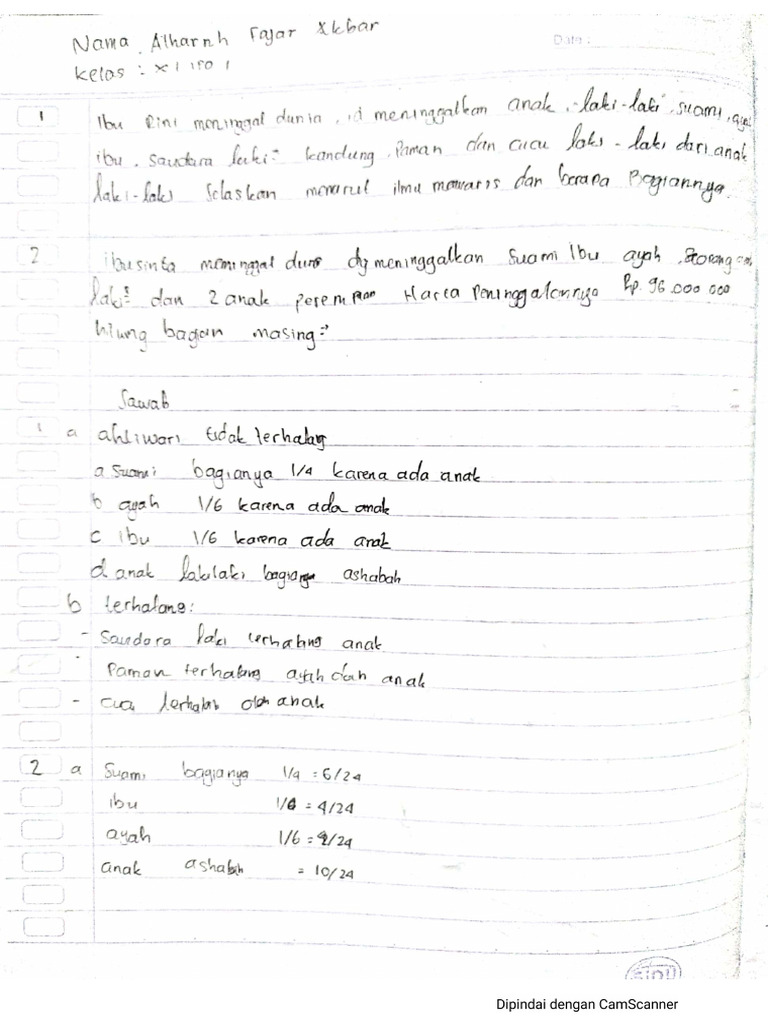 Nama Alharnh Fajar Akbar
Date :
Kelas : XI
1 Ibu Rini meninggal dunia, id meninggalkan anak -laki-laki, suami, aya
ibu, Saudara laki² kandung, Paman dan cucu laki - laki dari anak
laki-laki Jelaskan menurut ilmu mawaris dan berapa Bagiannya.
2 ibu sinta meninggal dunia dg meninggalkan Suami Ibu ayah, Seorang
laki² dan 2 anak perempuan Harta Peninggalannya Rp. 96.000.000
hitung bagian masing-²
Jawab
1 a ahliwaris tidak terhalang
a suami bagianya 1/4 karena ada anak
b ayah 1/6 karena ada anak
c ibu 1/6 karena ada anak
d anak laki laki bagianya ashabah
b terhalang:
- Saudara laki terhalang anak
- Paman terhalang ayah dan anak
- cucu terhalang oleh anak
2 a Suami bagianya 1/4 = 6/24
ibu 1/6 = 4/24
ayah 1/6 = 4/24
anak ashabah = 10/24
SIDU
Dipindai dengan CamScanner